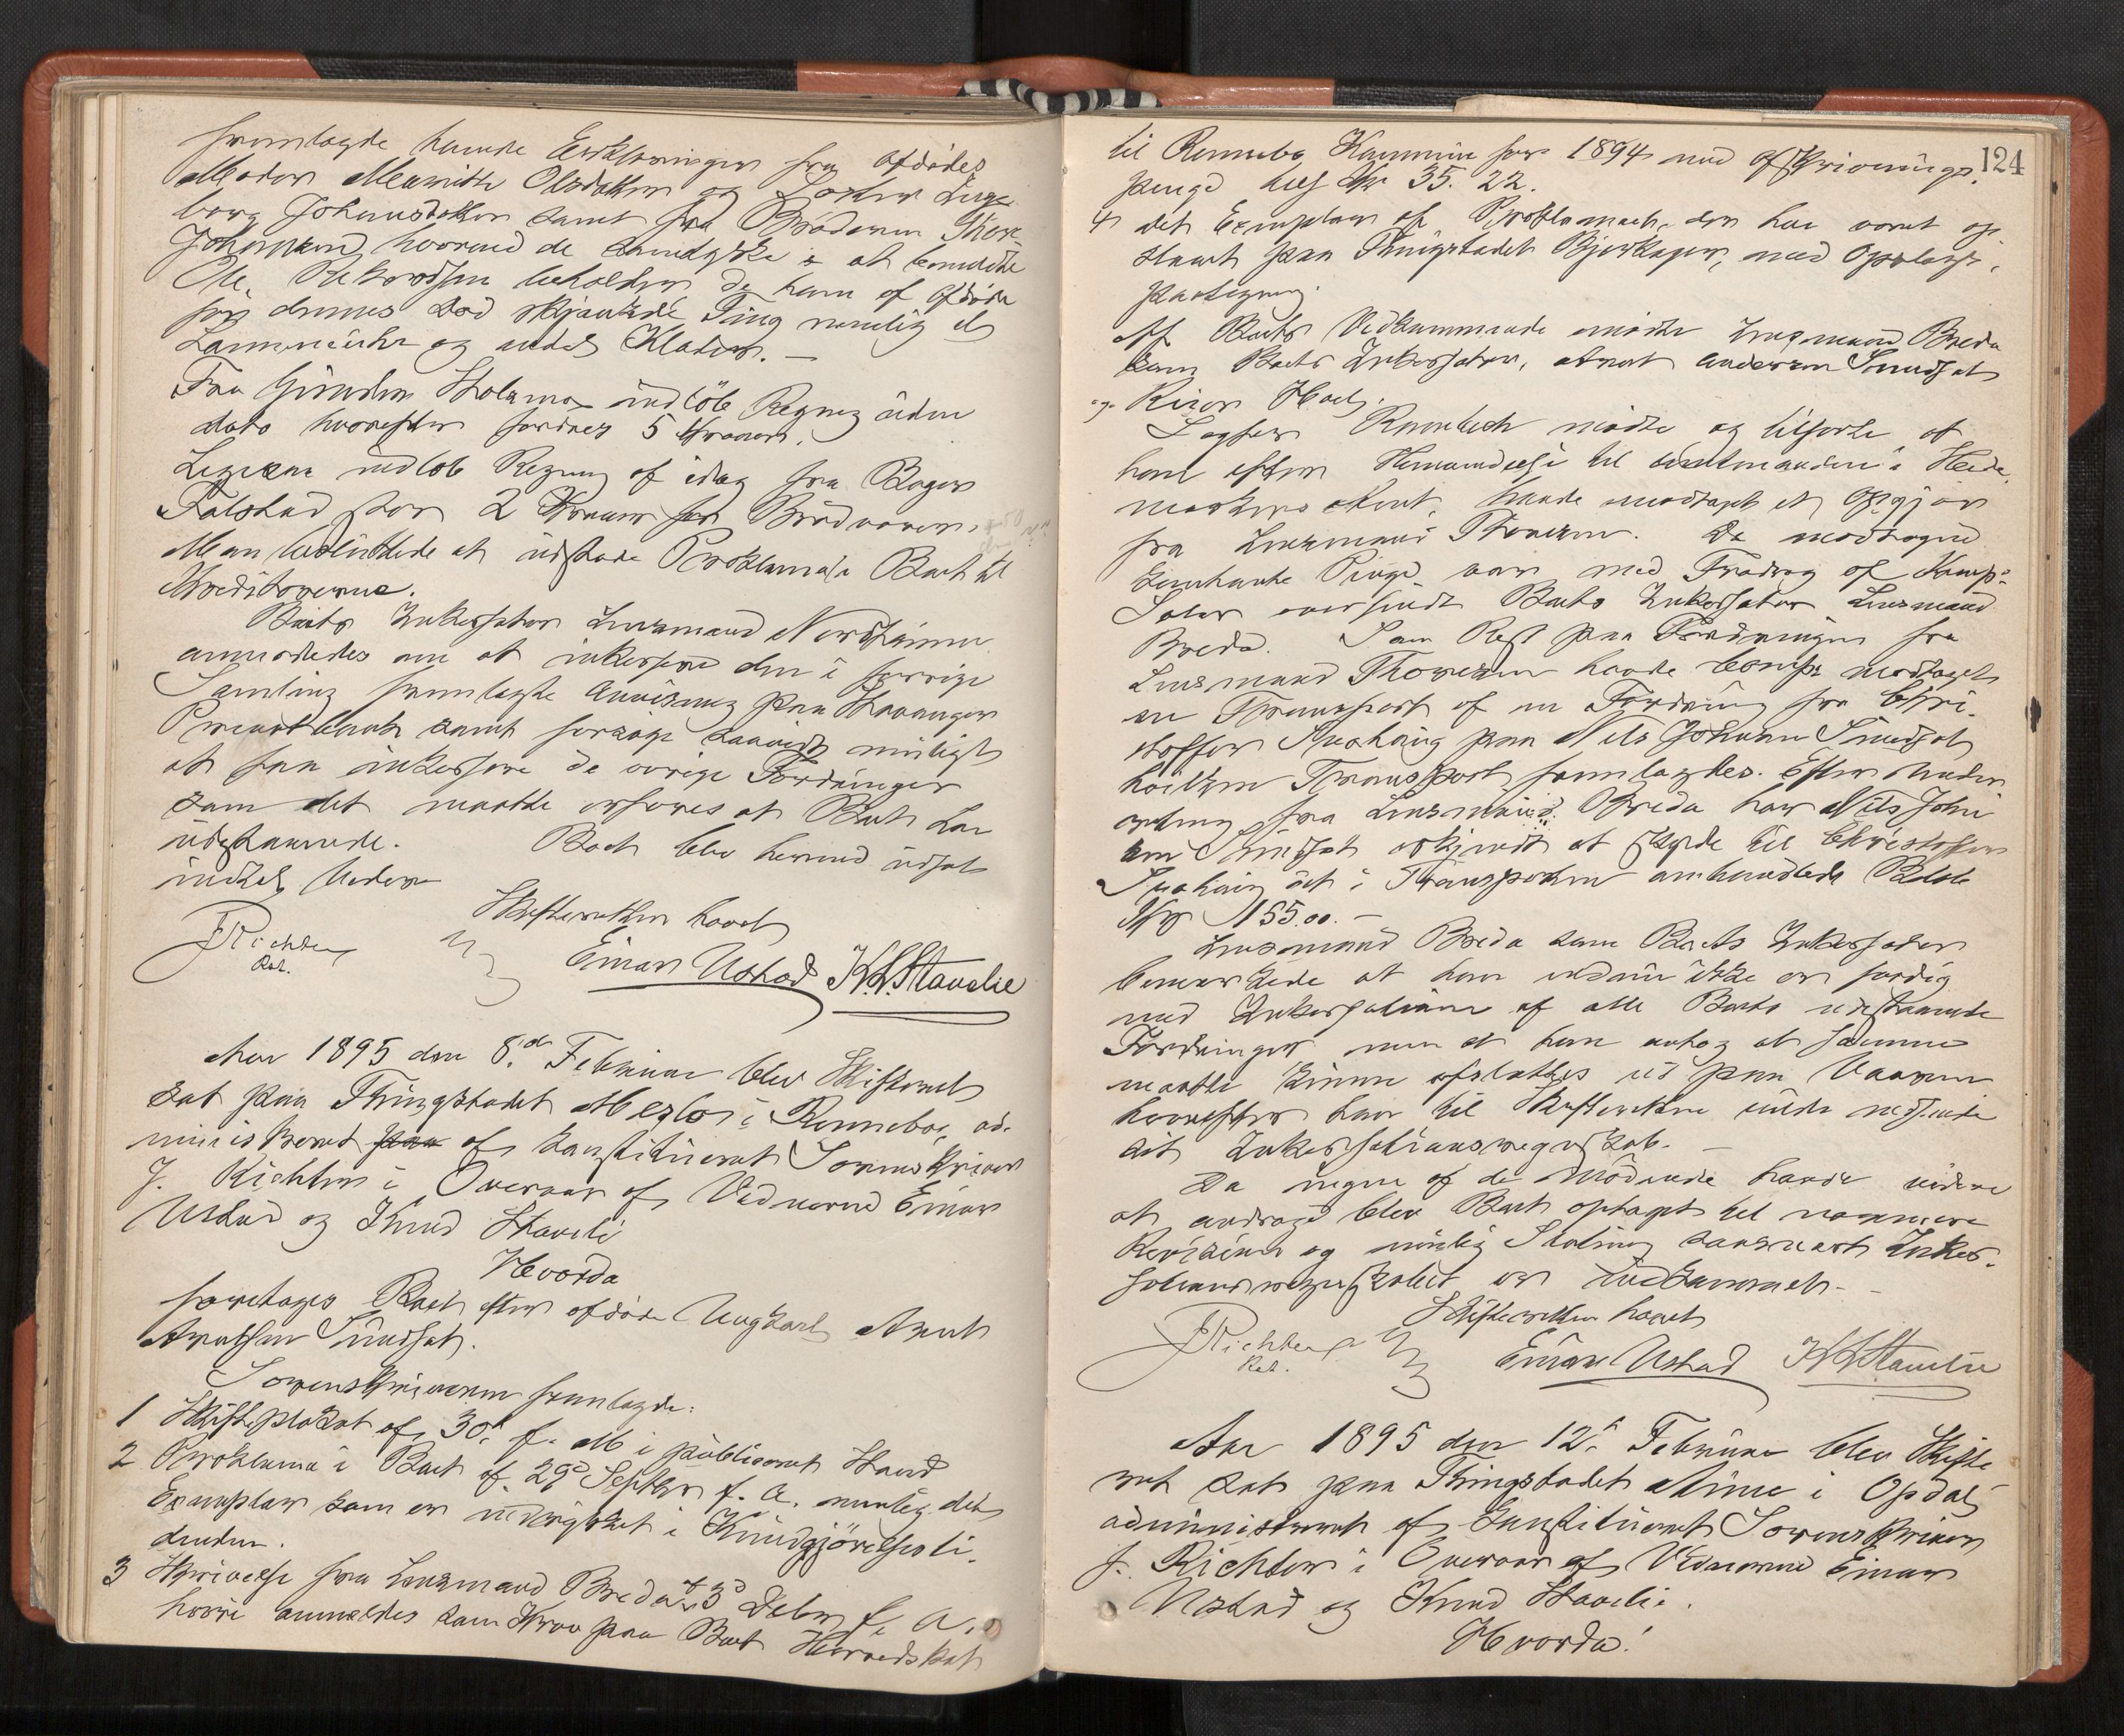 fremlagde hunde Erklæringer fra Afdødes
Moder Marritte Olsdatter og Søster Inge
borg Johnsdatter samt fra Broderen
Johnsen, hvorved de samtykke i at
Ole beholder de ham af Afdøde
før dennes Død skjænkede Ting nemlig et
Lommeuhr og endel Klæder. —
Fra Holamo indløb Regning uden
dato hvorefter fordres 5 Kroner.
Ligesaa indløb Regning af idag fra Bager
Falstad stor 2 Kroner for Brødvarer.
Man besluttede at udstede Proklama i Boet til
Kreditorerne.
Boets Inkassator Lensmand
anmodedes om at inkassere den i forrige
Samling fremlagte Anvisning paa Stavanger
Privatbank samt forsøge saavidt muligt
at faa inkassere de øvrige Fordringer
som det maatte erfares at Boet har
udestaaende. Boet blev herved udsat
indtil Videre
Skifteretten hævet
JRichter Einar Ustad K.L.Stavelie
Kst.
Aar 1895 den 8de Februar blev Skifteret
sat paa Thingstedet Mezlo i Rennebo, ad-
ministreret paa af konstitueret Sorenskriver
J. Richter i Overvær af Vidnerne Einar
Ustad og Knud Staveli
Hvorda
foretoges Boet efter afdøde Ungkarl Arnt
Arntsen Smedsat.
Sorenskriveren fremlagde:
1 Skifteplakat af 30te f. M i publiceret Stand
2 Proklama i Boet af 29de Septbr f. A. nemlig det
Exemplar som er indrykket i Kundgjørelsesti-
denden.
3 Skrivelse fra Lensmand Breda af 3d Debr f. A.
hvori anmeldes som Krav paa Boet Herredskat
124
til Rennebo Kommune for 1894 med Afskrivnings-
penge Kr 35.22.
4 det Exemplar af Proklamaet, der har været op-
slaaet paa Thingstedet Bjerkager, med Opslags-
paategning.
Af Boets Vedkommende mødte Lensmand Breda
som Boets Inkassator, Smedsat
og Hoel.
Sagfører mødte og tilførte at
han efter Henvendelse til
havde modtaget et Opgjør
fra Lensmand Thoresen. De modtagne
kontante Penge var med Fradrag af
Salær oversendt Boets Inkassator Lensmand
Breda. Som Rest paa Fordringen fra
Lensmand Thoresen havde Comp. modtaget
en Transport af en Fordring fra Chri-
stoffer paa Nils Johnsen Smedsat
hvilken Transport fremlagdes. Efter Under
retning fra Lensmand Breda har Nils John
sen Smedsat erkjendt at skylde til Christoffer
det i Transporten omhandlede Beløb
Kr 155.00. —
Lensmand Breda som Boets Inkassator
bemærkede at han endnu ikke er færdig
med Inkassationen af alle Boets udestaaende
Fordringer men at han antog at samme
maatte kunne afsluttes ud paa Vaaren
hvorefter han til Skifteretten vilde indsende
sit Inkassationsregnskab. —
Da ingen af de Mødende havde videre
at andrage blev Boet optaget til nærmere
Revision og mulig Slutning saasnart Inkas-
sationsregnskabet er indkommet. —
Skifteretten hævet
JRichter Einar Ustad KLStavelie
Kst.
Aar 1895 den 12te Februar blev Skifte
ret sat paa Thingstedet Aune i Opdal
administreret af konstitueret Sorenskriver
J. Richter i Overvær af Vidnerne Einar
Ustad og Knud Stavelie.
Hvorda!